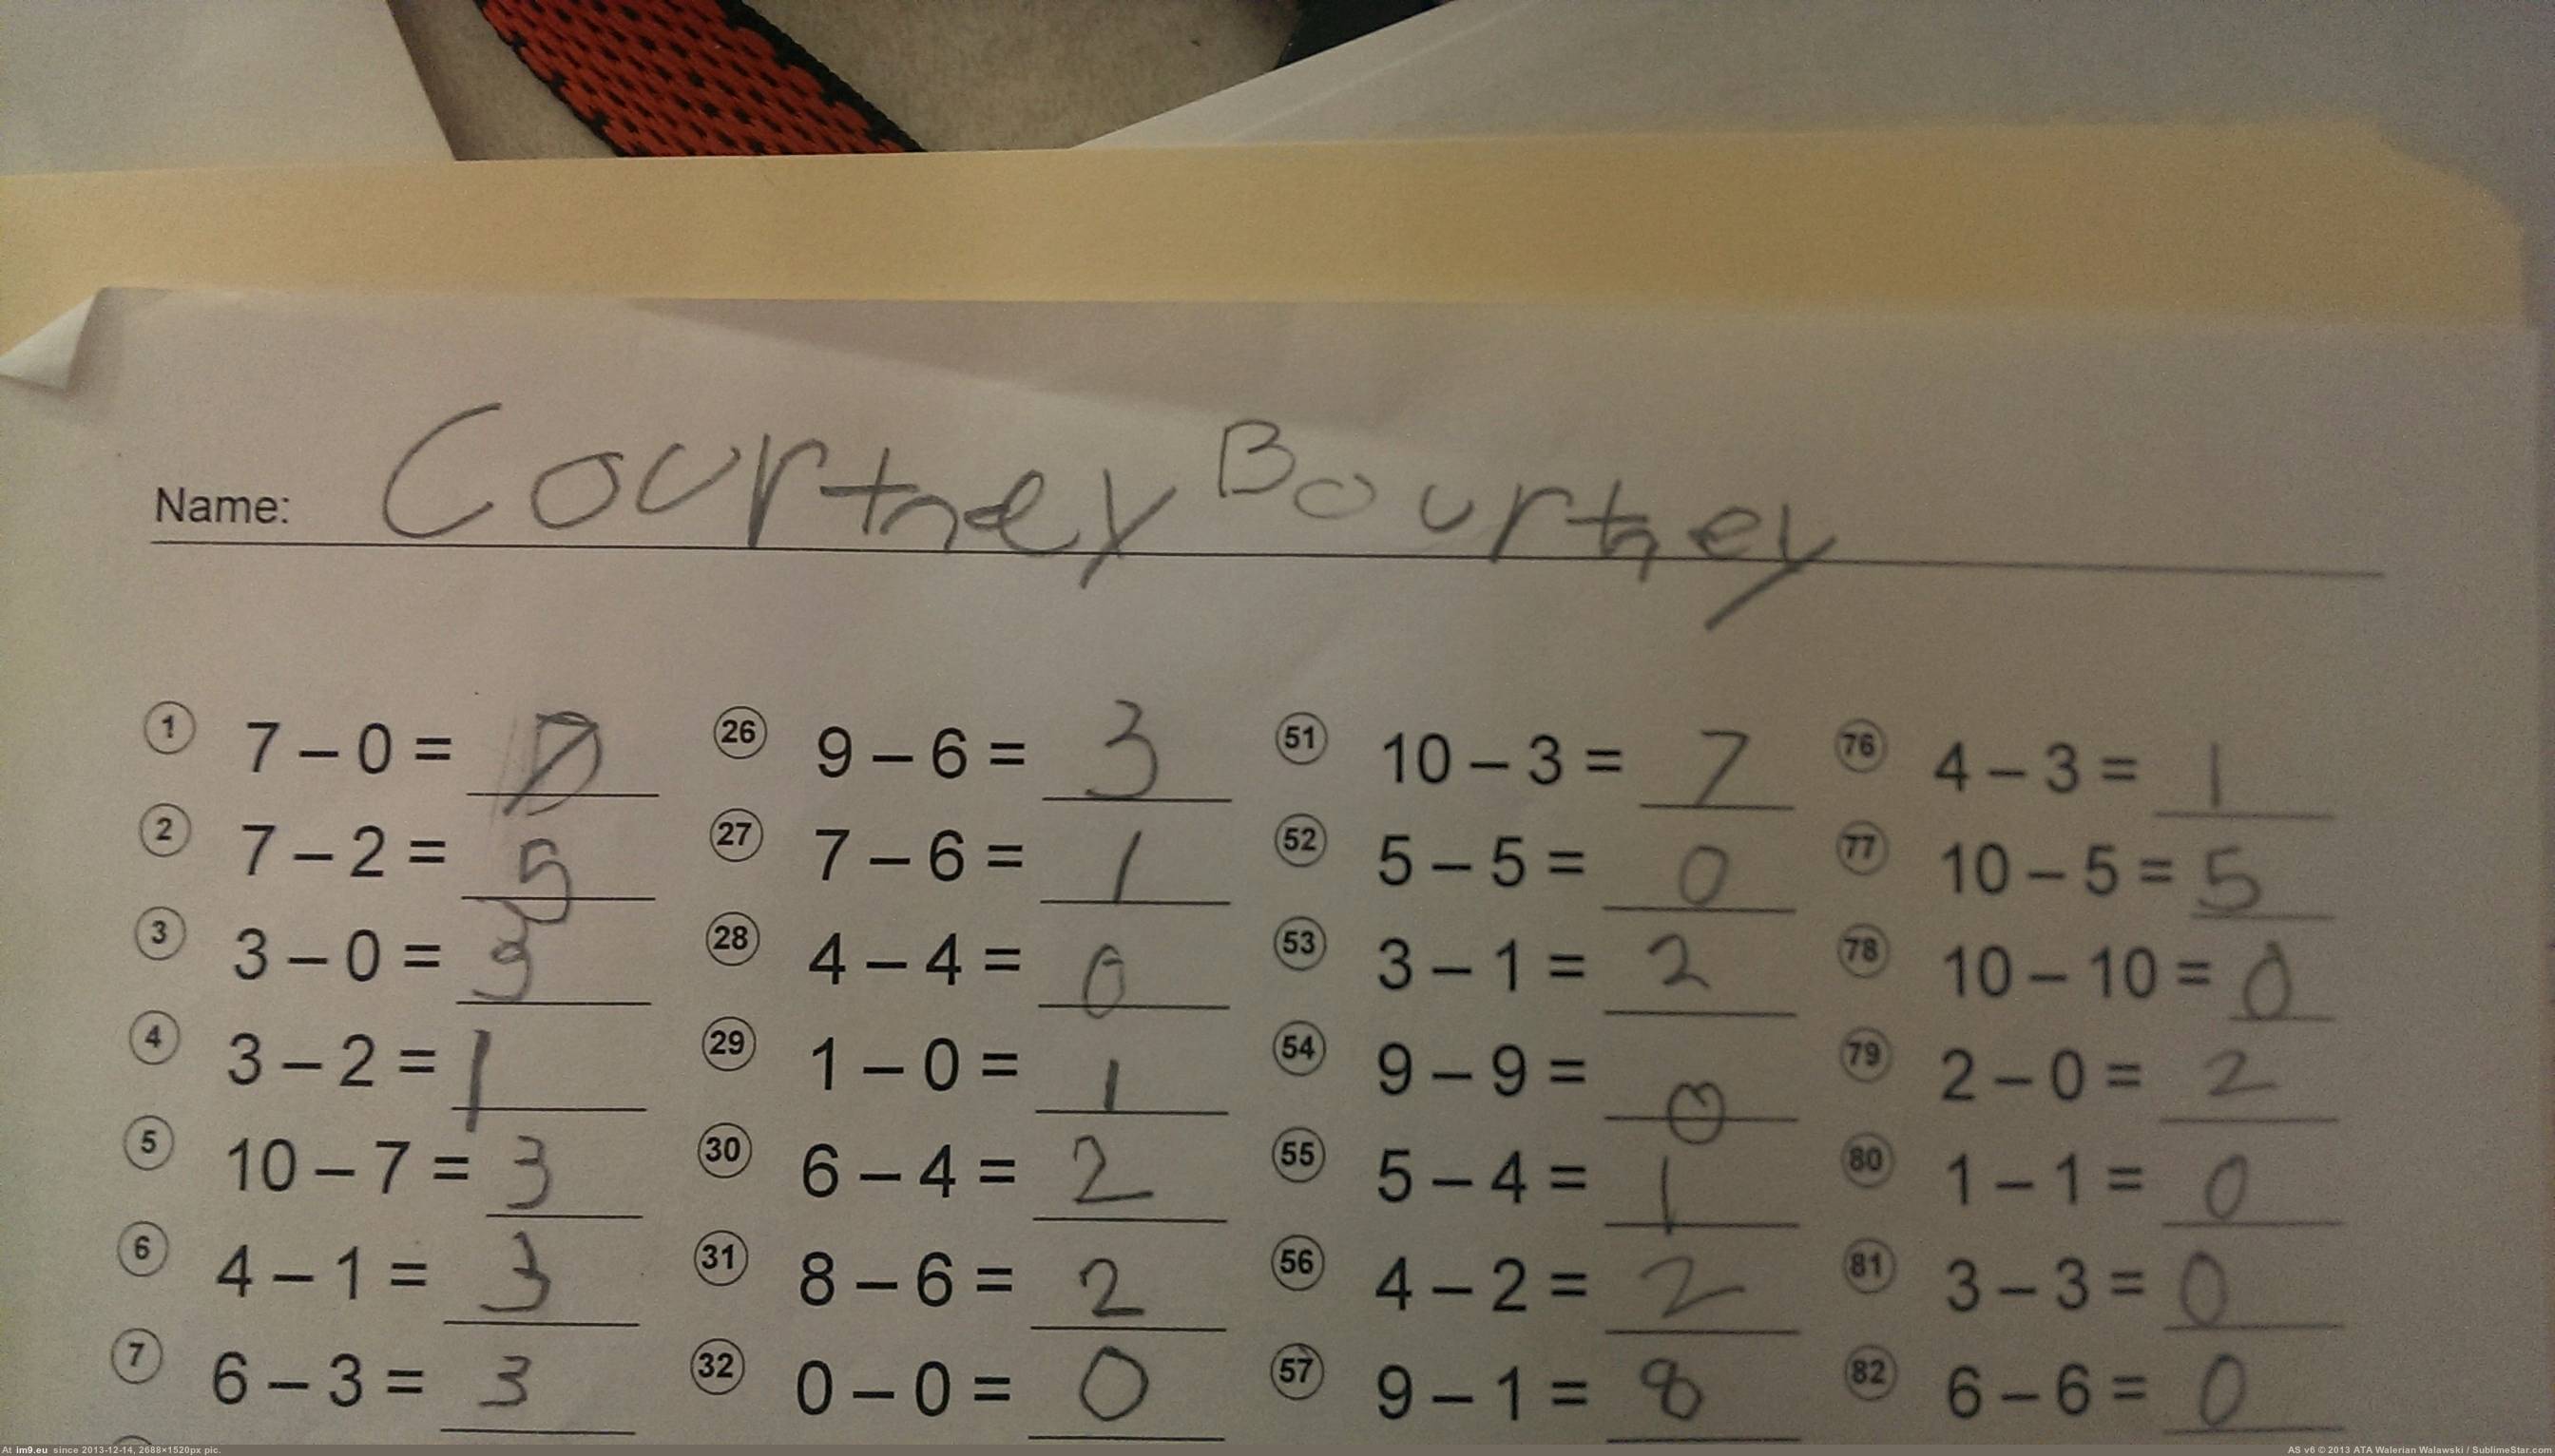 Name: Courtney Bourtney
1 7 – 0 = 7
2 7 – 2 = 5
3 3 – 0 = 3
4 3 – 2 = 1
5 10 – 7 = 3
6 4 – 1 = 3
7 6 – 3 = 3
26 9 – 6 = 3
27 7 – 6 = 1
28 4 – 4 = 0
29 1 – 0 = 1
30 6 – 4 = 2
31 8 – 6 = 2
32 0 – 0 = 0
51 10 – 3 = 7
52 5 – 5 = 0
53 3 – 1 = 2
54 9 – 9 = 0
55 5 – 4 = 1
56 4 – 2 = 2
57 9 – 1 = 8
76 4 – 3 = 1
77 10 – 5 = 5
78 10 – 10 = 0
79 2 – 0 = 2
80 1 – 1 = 0
81 3 – 3 = 0
82 6 – 6 = 0
At im9.eu since 2013-12-14, 2688×1520px pic.
AS v6 © 2013 ATA Walerian Walawski / SublimeStar.com